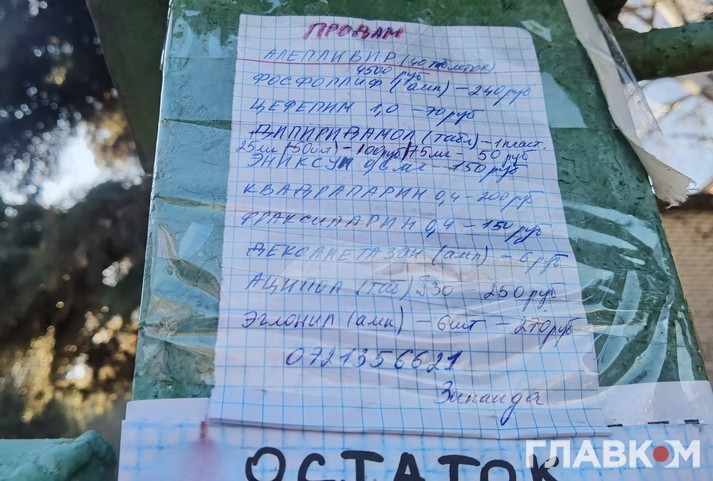 ПРОДАМ
АЛЕПЛИВИР (40 таблеток)
4500 руб
ФОСФОГЛИФ (амп) – 240 руб
ЦЕФЕПИМ 1,0 – 70 руб
ДИПИРИДАМОЛ (табл) – 1 пласт.
25мг (50шт) – 100руб, 75мг – 50 руб
ЭНИКСУМ 0,6 мг – 150 руб
КВАДРАПАРИН 0,4 – 200 руб
ФРАКСИПАРИН 0,4 – 150 руб
ДЕКСАМЕТАЗОН (амп) – 6 руб
АЦИПОЛ (таб) №30 250 руб
ЭГЛОНИЛ (амп) – 6 шт – 270 руб
0721356621
Зинаида
ОСТАТОК
ГЛАВКОМ